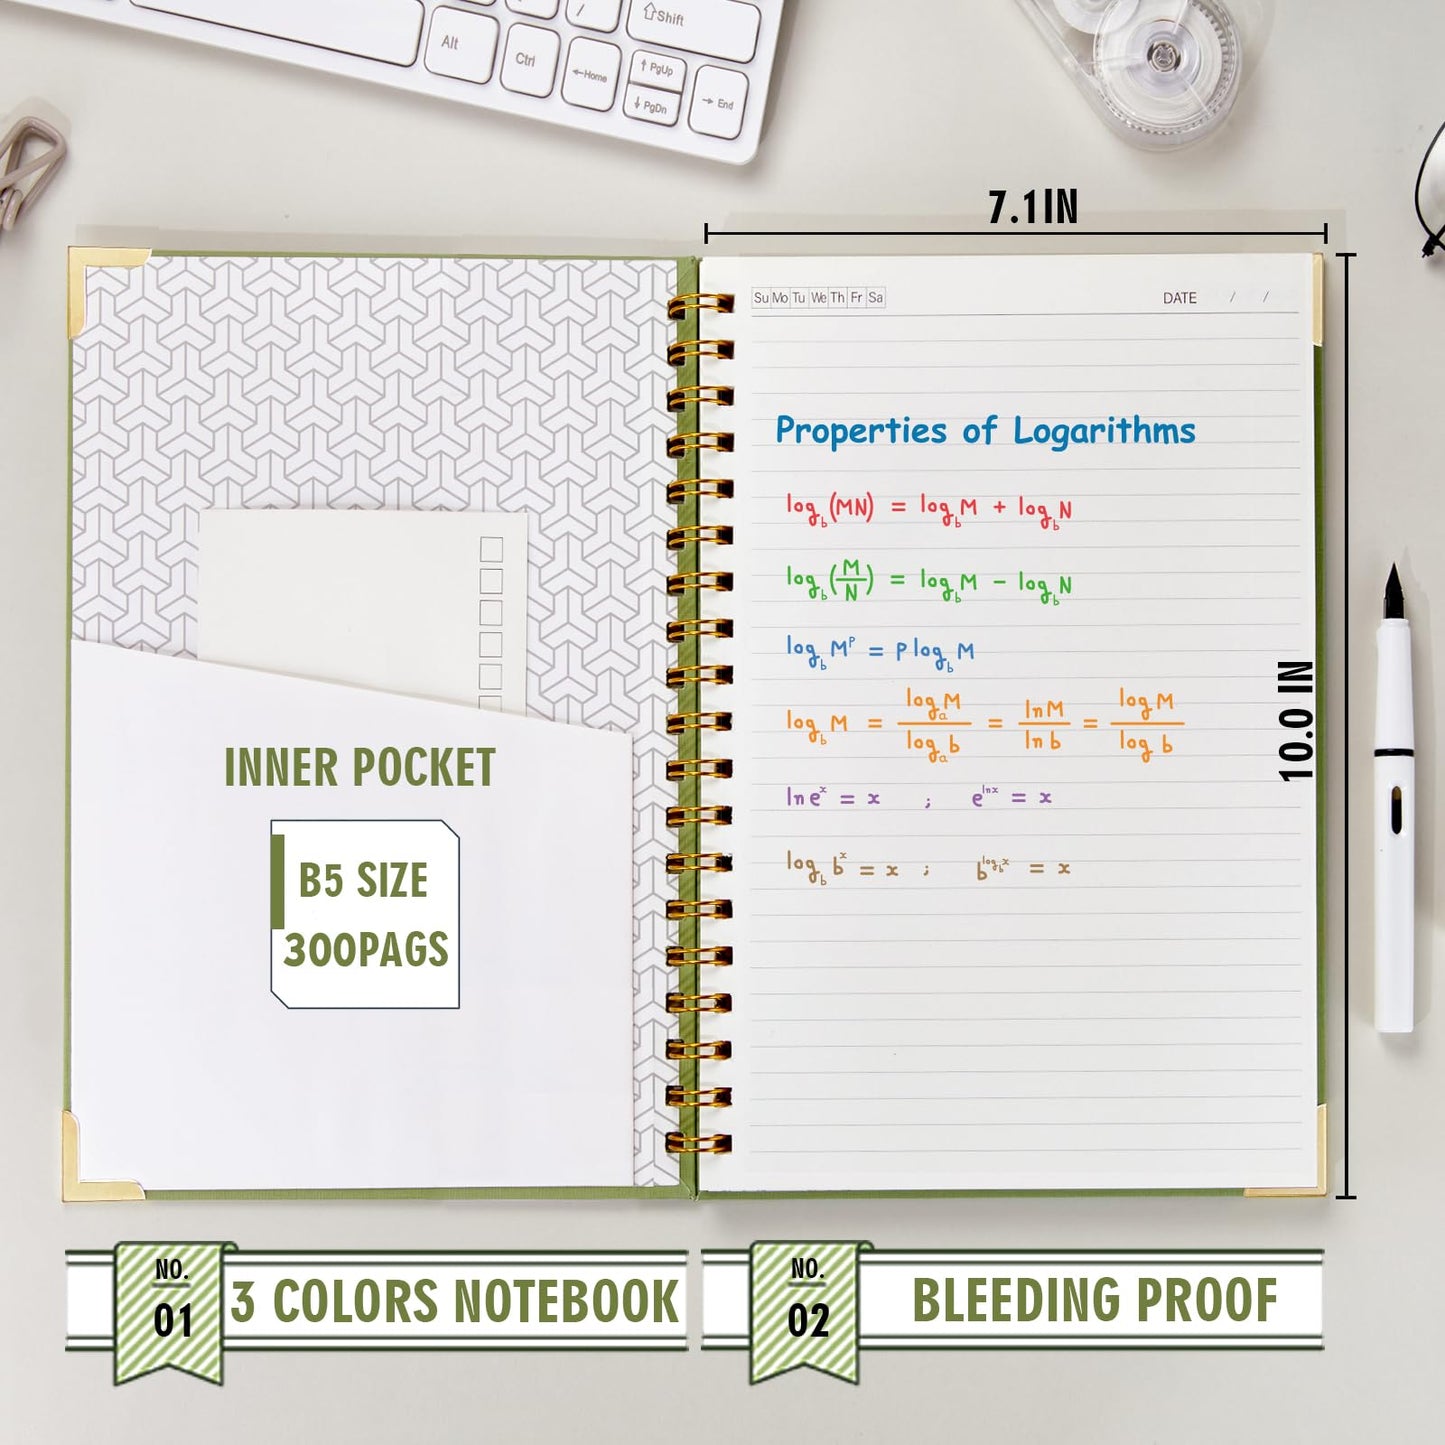 Alt
Ctrl
/
⇧Shift
←Home
↑ PgUp
↓ PgDn
→ End
7.1IN
Su Mo Tu We Th Fr Sa
DATE / /
Properties of Logarithms
log_b(MN) = log_b M + log_b N
log_b(M/N) = log_b M - log_b N
log_b M^P = P log_b M
log_b M = log_a M / log_a b = ln M / ln b = log M / log b
ln e^x = x ; e^(ln x) = x
log_b b^x = x ; b^(log_b x) = x
10.0 IN
INNER POCKET
B5 SIZE
300PAGS
NO.
01
3 COLORS NOTEBOOK
NO.
02
BLEEDING PROOF